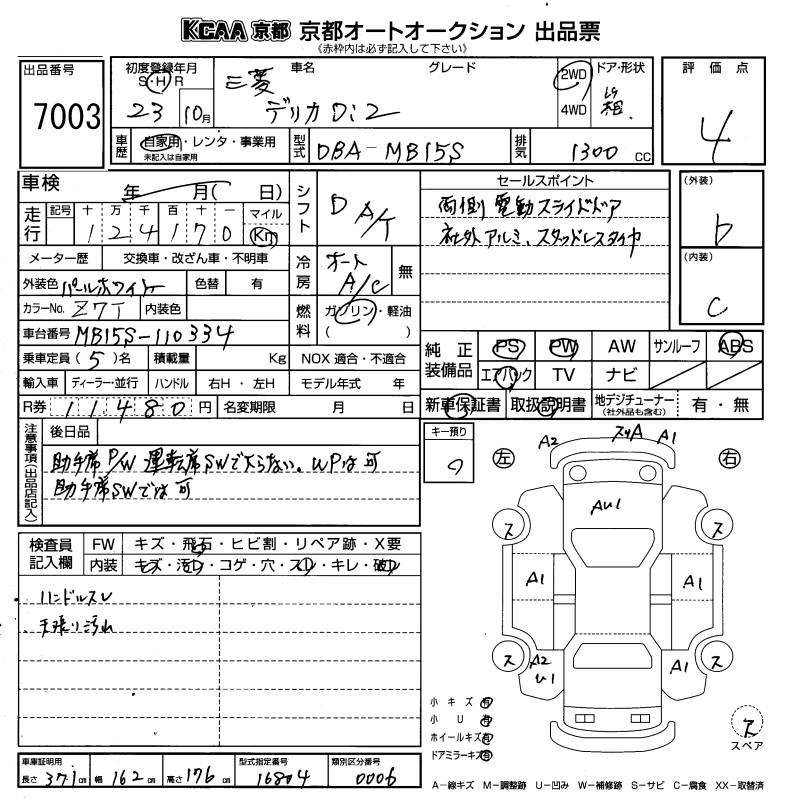 KCAA 京都 京都オートオークション 出品票
《赤枠内は必ず記入して下さい》
出品番号
7003
初度登録年月
S・H・R
23 10月
車名
三菱
デリカ Di2
グレード
2WD
4WD
ドア・形状
評価点
4
車歴
自家用・レンタ・事業用
未記入は自家用
型式
DBA-MB15S
排気
1300 cc
車検
年 月( 日)
シフト
D A/T
セールスポイント
両側電動スライドドア
社外アルミ、スタッドレスタイヤ
(外装)
b
(内装)
C
走行
記号 十 万 千 百 十 一 マイル
1 2 4 1 7 0 Km
メーター歴 交換車・改ざん車・不明車
冷房
オート A/C 無
外装色 パールホワイト 色替 有
カラーNo. Z7T 内装色
燃料
ガソリン・軽油
( )
車台番号 MB15S-110334
乗車定員 (5)名 積載量 Kg NOX 適合・不適合
輸入車 ディーラー・並行 ハンドル 右H・左H モデル年式 年
R券 11480 円 名変期限 月 日
純正装備品
PS PW AW サンルーフ ABS
エアバック TV ナビ
新車保証書 取扱説明書 地デジチューナー(社外品も含む) 有・無
注意事項(出品店記入)
後日品
助手席 P/W 運転席SWで下らない。UPは可
助手席SWでは可
キー預り
左
右
A2 A1
AU1
ス ス
A1 A1
ス A2 U1 A1 ス
検査員記入欄
FW キズ・飛石・ヒビ割・リペア跡・X要
内装 キズ・汚れ・コゲ・穴・スレ・キレ・破れ
・ハンドルスレ
・天張り汚れ
小キズ 有
小U 有
ホイールキズ 有
ドアミラーキズ 有
ス
スペア
車庫証明用
長さ 371 cm 幅 162 cm 高さ 176 cm
型式指定番号
16804
類別区分番号
0006
A-線キズ M-調整跡 U-凹み W-補修跡 S-サビ C-腐食 XX-取替済